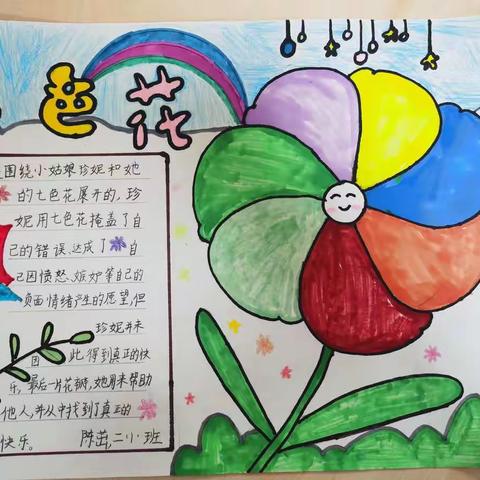 色花
围绕小姑娘珍妮和她
的七色花展开的,珍
妮用七色花掩盖了自
己的错误、达成了自
己因愤怒、嫉妒等自己的
负面情绪产生的愿望,但
珍妮并未
因此得到真正的快
乐,最后一片花瓣,她用来帮助
他人,并从中找到了真正的
快乐。 陈茁,二小班